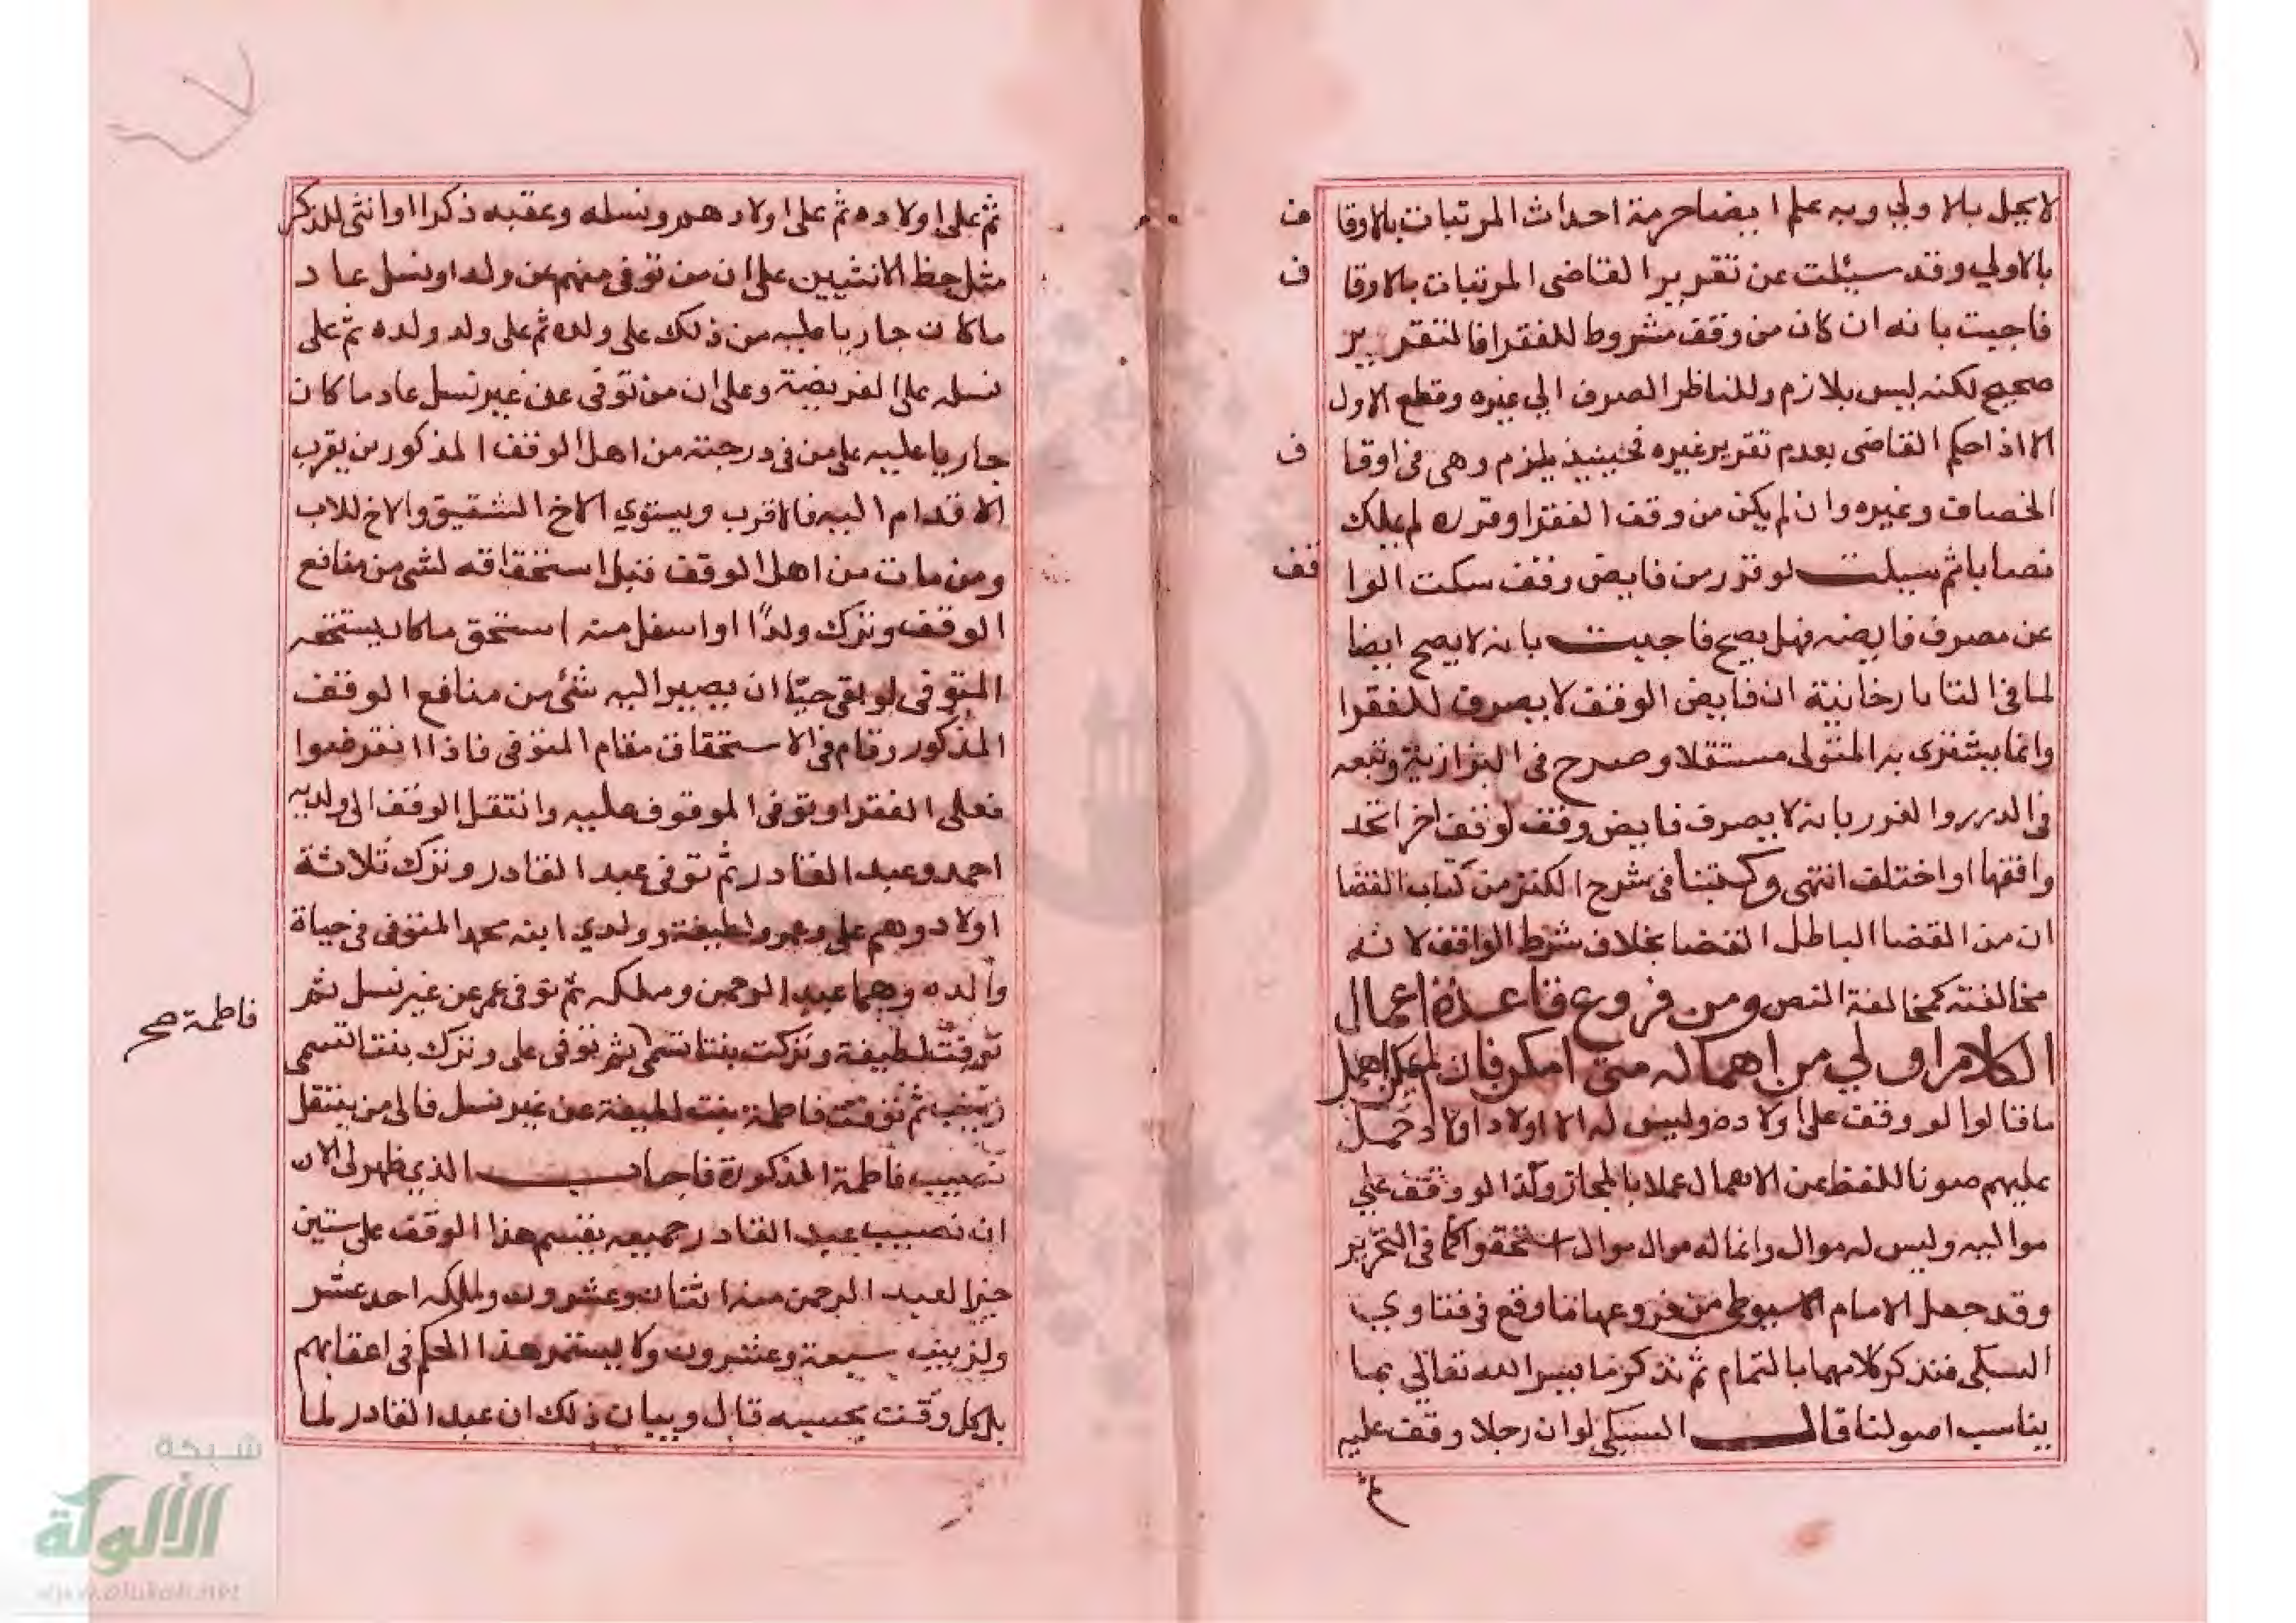 لا يحل بالاولي وبه علم ايضا حرمة احداث المرتبات بالاوقا ف
بالاولي وقد سيلت عن تقرير القاضي المرتبات بالاوقا ف
فاجبت بانه ان كان من وقف مشروط للفقرا فالتقرير
صحيح لكنه ليس بلازم وللناظر الصرف الي غيره وقطع الاول
الا اذا حكم القاضي بعدم تقرير غيره فحينيذ يلزم وهي في اوقا ف
الخصاف وغيره وان لم يكن من وقف الفقرا وقرره لم يملك
نصابا ثم سيلت لو قرر من فايض وقف سكت الوا قف
عن مصرف فايضه فهل يصح فاجبت بانه لا يصح ايضا
لما في التتارخانية ان فايض الوقف لا يصرف للفقرا
وانما يشتري به المتولي مستغلا وصرح في البزازية وتبعه
في الدرر والغرر بانه لا يصرف فايض وقف لوقف اخر اتحد
واقفها او اختلف انتهى وكتبنا في شرح الكنز من كتاب القضا
ان من القضا الباطل القضا بخلاف شرط الواقف لانه
مخالفته كمخالفة النص ومن فروع قاعدة اعمال
الكلام اولي من اهماله متى امكن فان لم يمكن اهمل
ما قالوا لو وقف على اولاده وليس له الا اولاد اولاد حمل
عليهم صونا للفظ عن الاهمال عملا بالمجاز وكذا لو وقف علي
مواليه وليس له موال وانما له موال موال استحقوا كما في التحرير
وقد جعل الامام الاسيوطي من فروعها ما وقع في فتاوي
السبكي فنذكر كلامهما بالتمام ثم نذكر ما يسر الله تعالي بما
يناسب اصولنا قال السبكي لو ان رجلا وقف عليه
ثم
ثم على اولاده ثم على اولادهم ونسله وعقبه ذكرا او انثى للذكر
مثل حظ الانثيين على ان من توفى منهم عن ولد او نسل عاد
ما كان جاريا عليه من ذلك على ولده ثم على ولد ولده ثم على
نسله على الفريضة وعلى ان من توفى عن غير نسل عاد ما كان
جاريا عليه على من في درجته من اهل الوقف المذكور من يقرب
الاقدام اليه فالاقرب ويستوي الاخ الشقيق والاخ للاب
ومن مات من اهل الوقف قبل استحقاقه لشي من منافع
الوقف وترك ولدًا او اسفل منه استحق ما كان يستحقه
المتوفى لو بقى حيّا ان يصير اليه شئ من منافع الوقف
المذكور وقام في الاستحقاق مقام المتوفى فاذا انقرضوا
فعلى الفقرا وتوفى الموقوف عليه وانتقل الوقف الى ولديه
احمد وعبد القادر ثم توفى عبد القادر وترك ثلاثة
اولاد وهم على وعمر ولطيفة وولدي ابنه محمد المتوفى في حياة
والده وهما عبد الرحمن وملكه ثم توفى عمر عن غير نسل ثم
توفيت لطيفة وتركت بنتا تسمى ثم توفى على وترك بنتا تسمى
فاطمة صح
زينب ثم توفيت فاطمة بنت لطيفة عن غير نسل فالى من ينتقل
نصيب فاطمة المذكورة فاجاب الذي ظهر لى الان
ان نصيب عبد القادر جميعه يقسم هذا الوقف على ستين
جزا لعبد الرحمن منه اثنان وعشرون ولملكه احد عشر
ولزينب سبعة وعشرون ولا يستمر هذا الحكم في اعقابهم
بل كل وقت بحسبه قال وبيان ذلك ان عبد القادر لما
شبكة
الألوكة
www.alukah.net